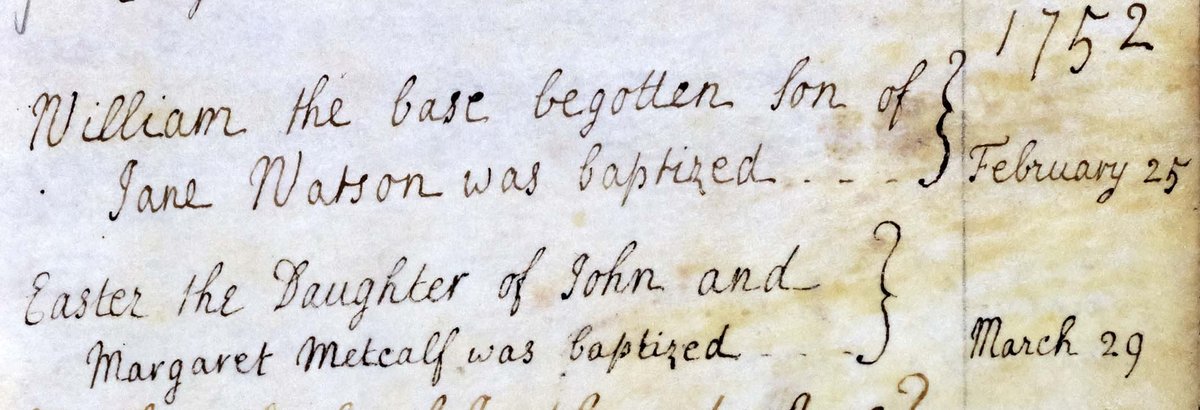 1752
William the base begotten Son of
Jane Watson was baptized - - - - February 25
Easter the Daughter of John and
Margaret Metcalf was baptized - - - - March 29